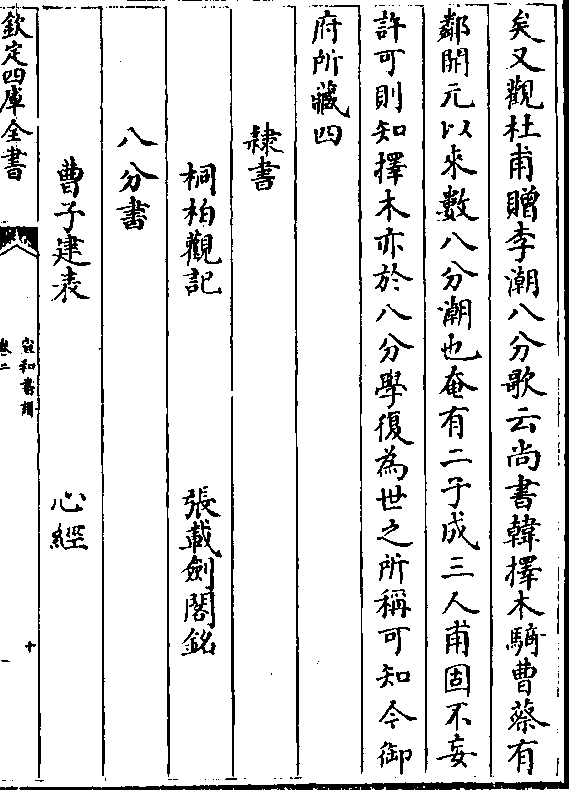 矣又觀杜甫贈李潮八分歌云尚書韓擇木騎曹蔡有
鄰開元以來數八分潮也奄有二子成三人甫固不妄
許可則知擇木亦於八分學復為世之所稱可知今御
府所藏四
隸書
桐柏觀記　張載劍閣銘
八分書
曹子建表　心經
欽定四庫全書
宣和書譜
卷二
十